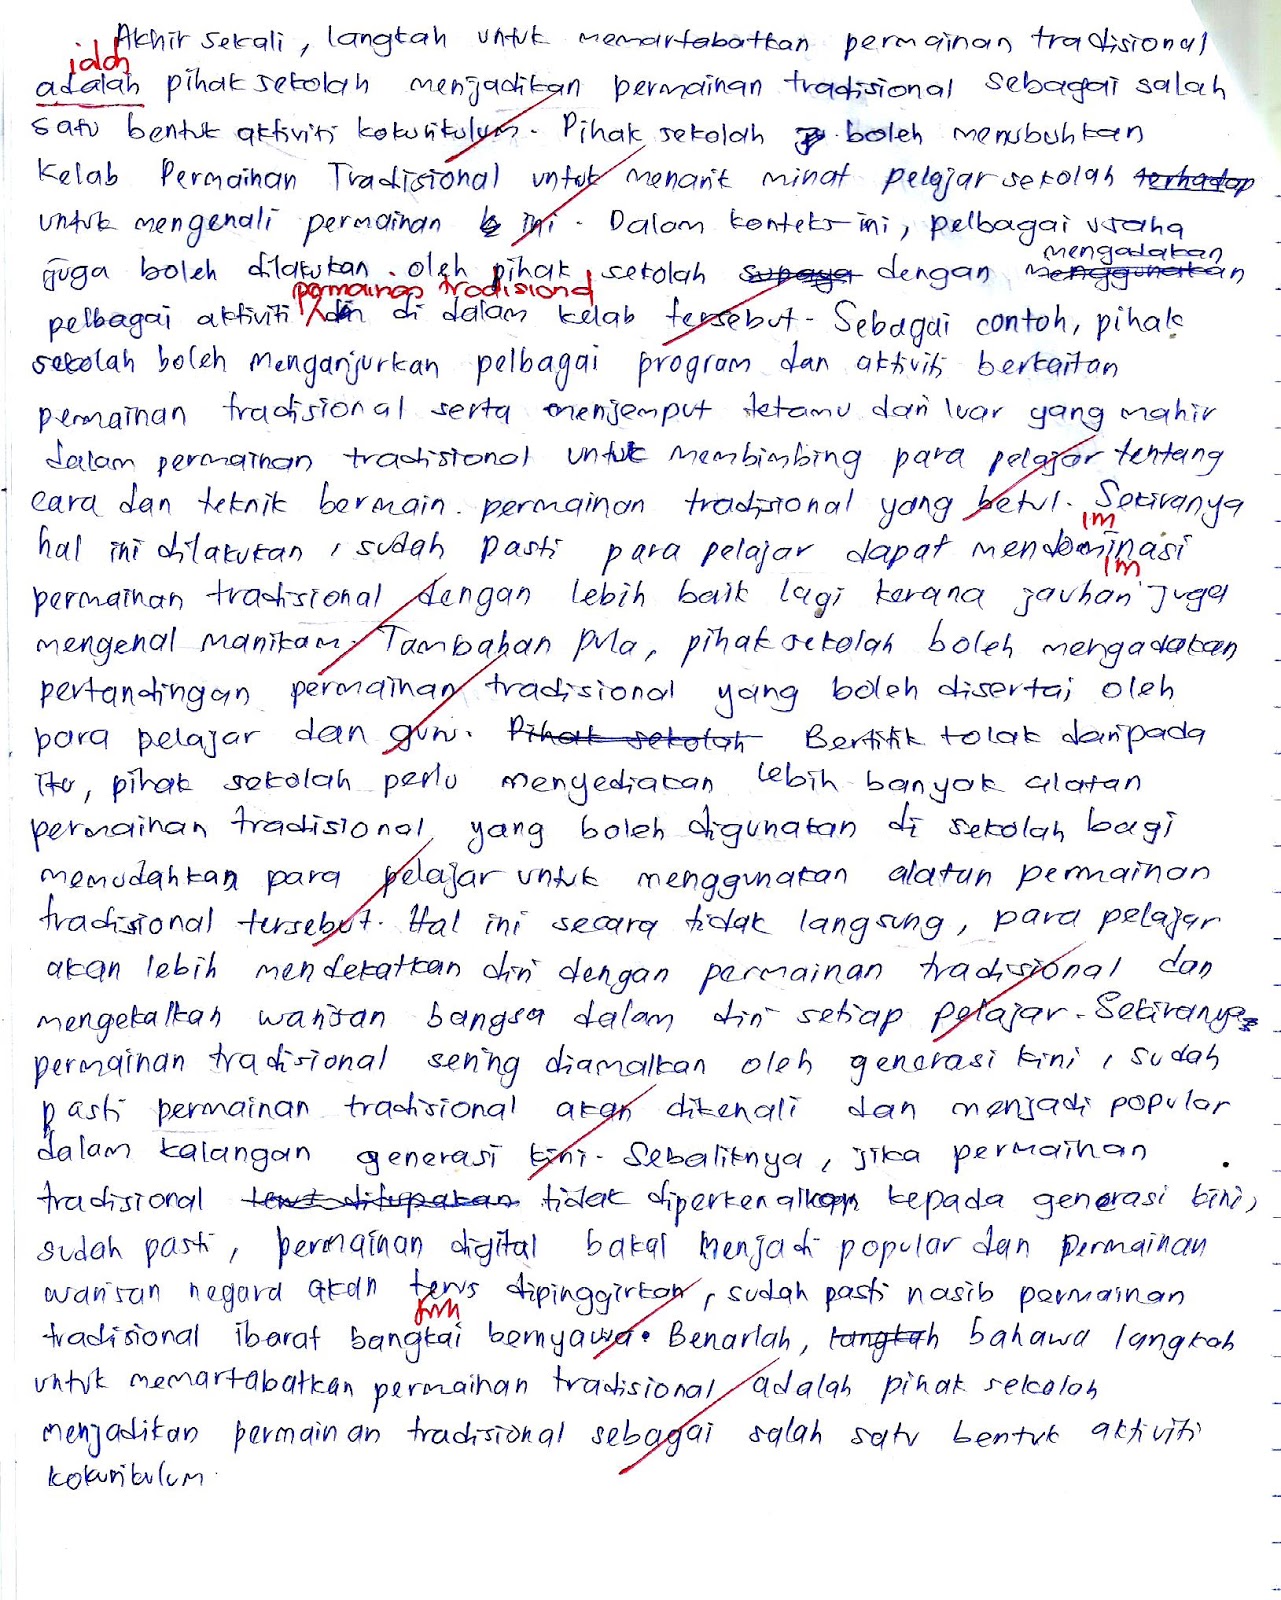 Akhir sekali, langkah untuk memartabatkan permainan tradisional
ialah
adalah pihak sekolah menjadikan permainan tradisional sebagai salah
satu bentuk aktiviti kokurikulum. Pihak sekolah boleh menubuhkan
Kelab Permainan Tradisional untuk menarik minat pelajar sekolah terhadap
untuk mengenali permainan ini. Dalam konteks ini, pelbagai usaha
mengadakan
juga boleh dilakukan oleh pihak sekolah supaya dengan menggunakan
permainan tradisional
pelbagai aktiviti di dalam kelab tersebut. Sebagai contoh, pihak
sekolah boleh menganjurkan pelbagai program dan aktiviti berkaitan
permainan tradisional serta menjemput tetamu dari luar yang mahir
dalam permainan tradisional untuk membimbing para pelajar tentang
cara dan teknik bermain permainan tradisional yang betul. Sekiranya
1m
hal ini dilakukan, sudah pasti para pelajar dapat mendominasi
1m
permainan tradisional dengan lebih baik lagi kerana jauhari juga
mengenal manikam. Tambahan pula, pihak sekolah boleh mengadakan
pertandingan permainan tradisional yang boleh disertai oleh
para pelajar dan guru. Pihak sekolah Bertitik tolak daripada
itu, pihak sekolah perlu menyediakan lebih banyak alatan
permainan tradisional yang boleh digunakan di sekolah bagi
memudahkan para pelajar untuk menggunakan alatan permainan
tradisional tersebut. Hal ini secara tidak langsung, para pelajar
akan lebih mendekatkan diri dengan permainan tradisional dan
mengekalkan warisan bangsa dalam diri setiap pelajar. Sekiranya
permainan tradisional sering diamalkan oleh generasi kini, sudah
pasti permainan tradisional akan dikenali dan menjadi popular
dalam kalangan generasi kini. Sebaliknya, jika permainan
tradisional tidak diperkenalkan kepada generasi kini,
sudah pasti, permainan digital bakal menjadi popular dan permainan
warisan negara akan terus dipinggirkan, sudah pasti nasib permainan
tradisional ibarat bangkai bernyawa. Benarlah, langkah bahawa langkah
untuk memartabatkan permainan tradisional adalah pihak sekolah
menjadikan permainan tradisional sebagai salah satu bentuk aktiviti
kokurikulum.